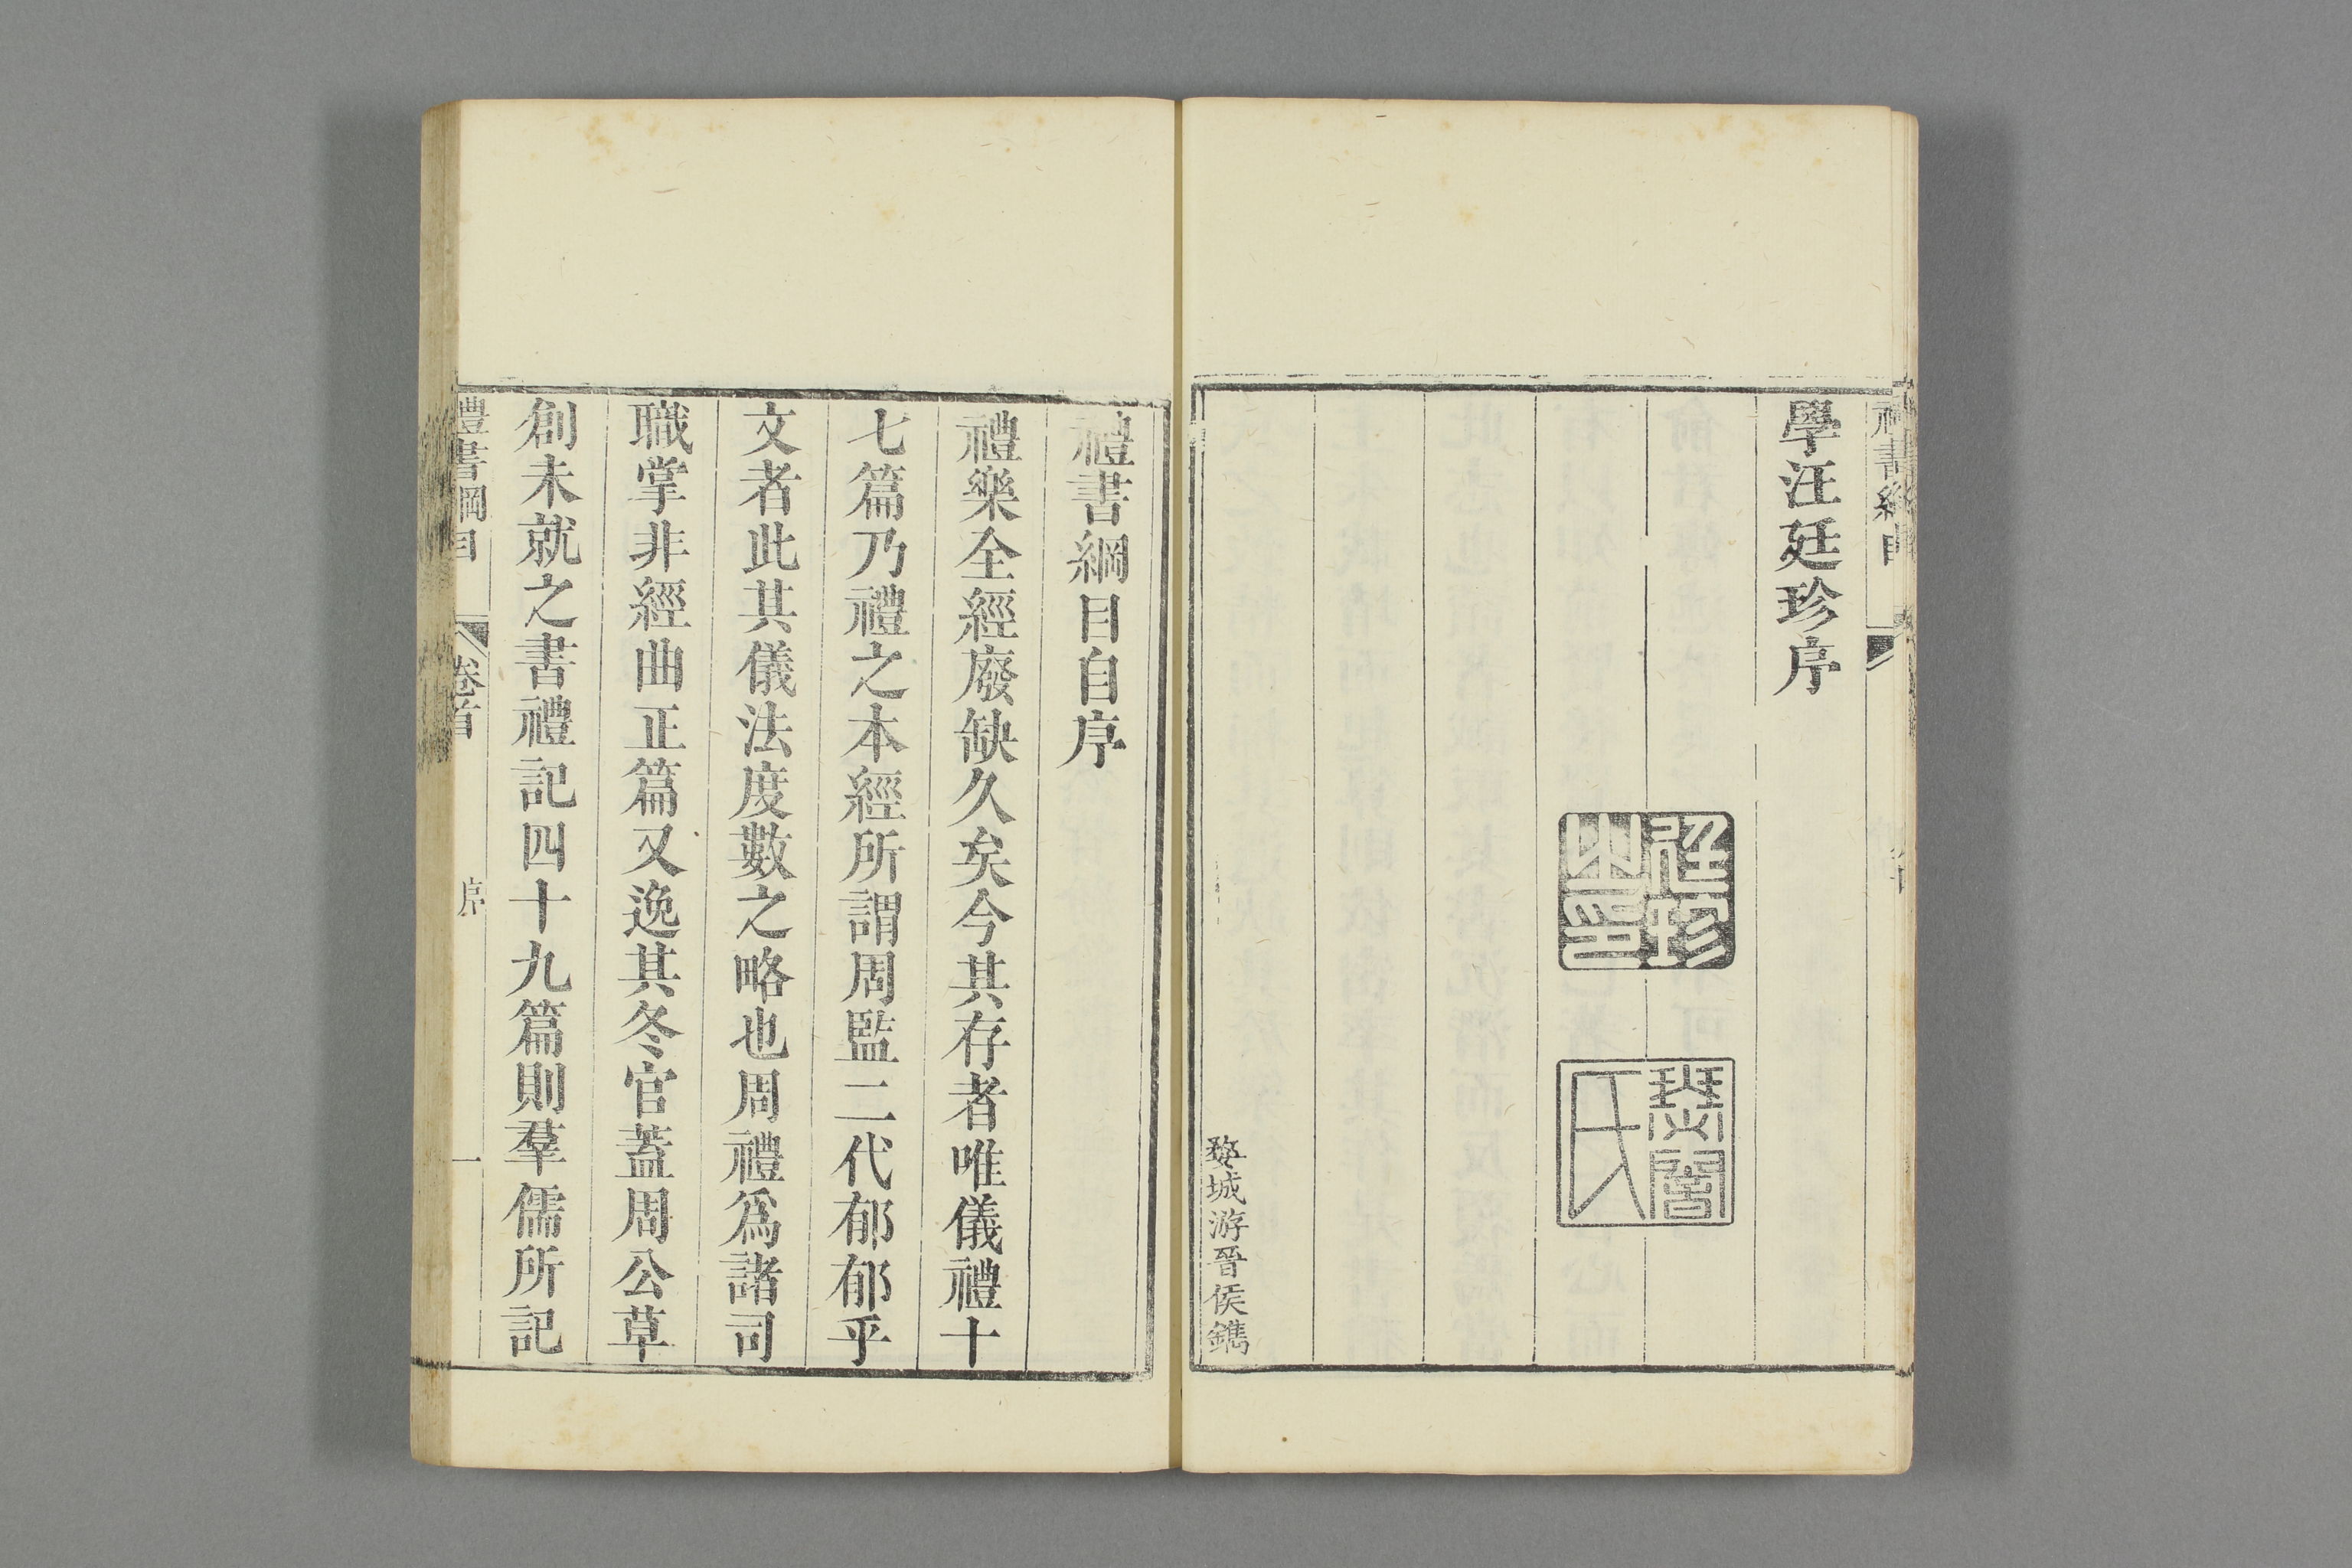 禮書綱目
學汪廷珍序
廷珍之印
瑟闇氏
婺城游晉侯鐫
禮書綱目自序
禮樂全經廢缺久矣今其存者唯儀禮十
七篇乃禮之本經所謂周監二代郁郁乎
文者此其儀法度數之略也周禮爲諸司
職掌非經曲正篇又逸其冬官蓋周公草
創未就之書禮記四十九篇則羣儒所記
禮書綱目 卷首 序 一